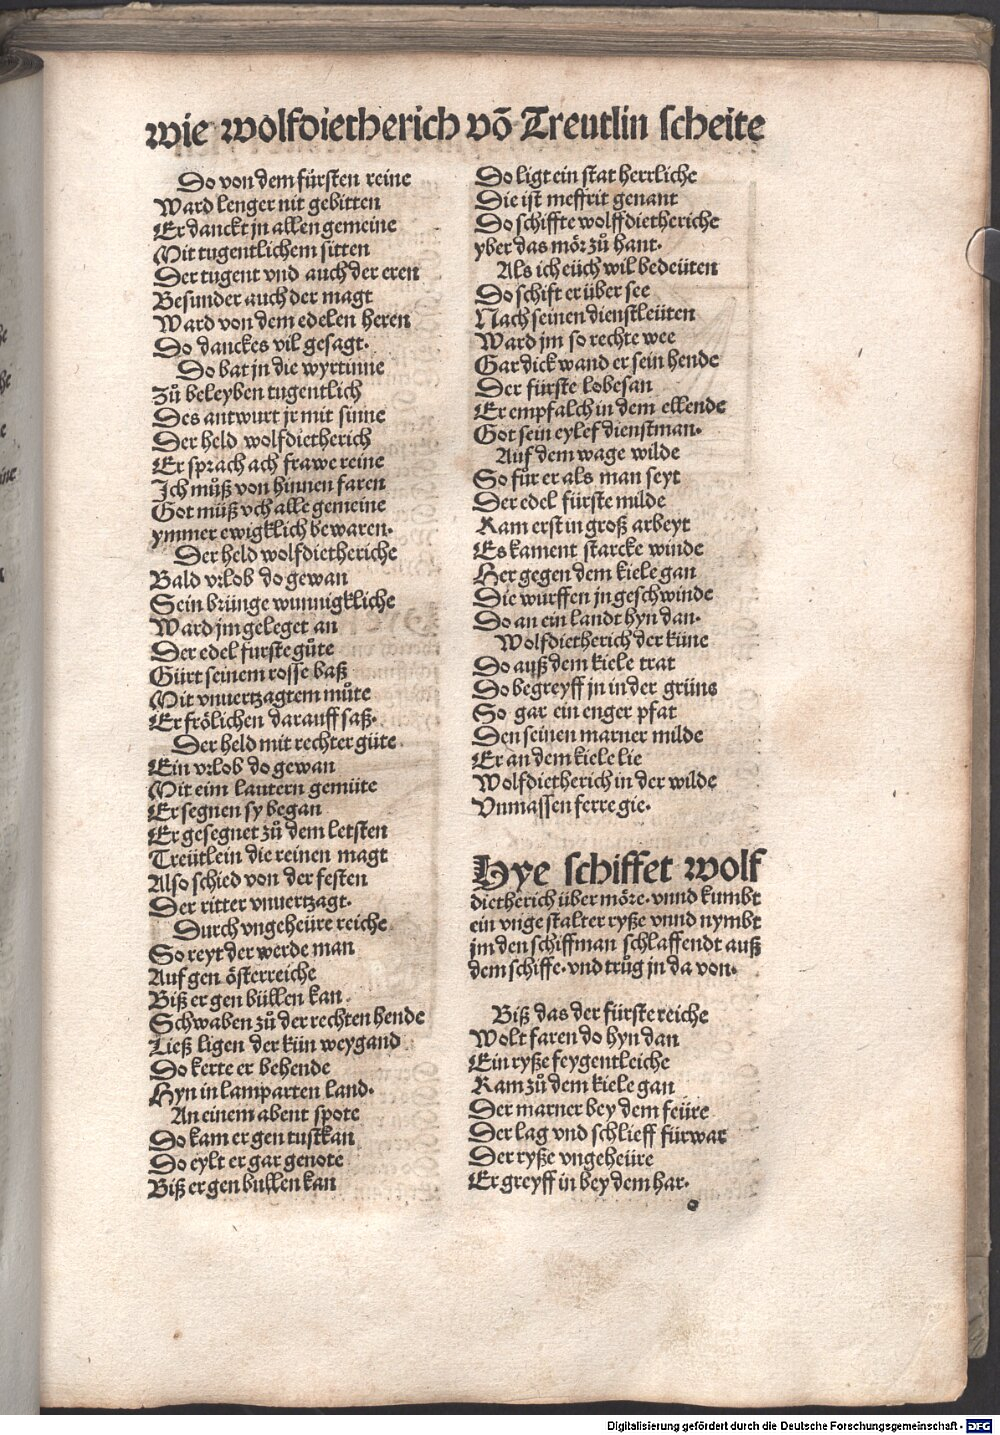 wie wolfdietherich vō Treutlin scheite
Do von dem fürsten reine
Ward lenger nit gebitten
Er danckt jn allen gemeine
Mit tugentlichem sitten
Der tugent vnd auch der eren
Besunder auch der magt
Ward von dem edelen heren
Do danckes vil gesagt.
Do bat jn die wyrtinne
Zů beleyben tugentlich
Des antwurt jr mit sinne
Der held wolfdietherich
Er sprach ach frawe reine
Ich můß von hinnen faren
Got müß vch alle gemeine
ymmer ewigklich bewaren.
Der held wolfdietheriche
Bald vrlob do gewan
Sein brünge wunnigkliche
Ward jm geleget an
Der edel furste gůte
Gürt seinem rosse baß
Mit vnuertzagtem můte
Er frölichen darauff saß.
Der held mit rechter güte
Ein vrlob do gewan
Mit eim lautern gemüte
Er segnen sy began
Er gesegnet zů dem letsten
Treütlein die reinen magt
Also schied von der festen
Der ritter vnuertzagt.
Durch vngeheüre reiche
So reyt der werde man
Auf gen österreiche
Biß er gen büllen kan.
Schwaben zů der rechten hende
Ließ ligen der kün weygand
Do kerte er behende
Hyn in lamparten land.
An einem abent spote
Do kam er gen tustkan
Do eylt er gar genote
Biß er gen bullen kan
Do ligt ein stat herrliche
Die ist meffrit genant
Do schiffte wolffdietheriche
yber das mör zů hant.
Als ich eüch wil bedeüten
Do schift er über see
Nach seinen dienstleüten
Ward jm so rechte wee
Gar dick wand er sein hende
Der fürste lobesan
Er empfalch in dem ellende
Got sein eylef dienstman.
Auf dem wage wilde
So für er als man seyt
Der edel fürste milde
Kam erst in groß arbeyt
Es kament starcke winde
Her gegen dem kiele gan
Die wurffen jn geschwinde
Do an ein landt hyn dan.
Wolfdietherich der küne
Do auß dem kiele trat
Do begreyff jn in der grüns
So gar ein enger pfat
Den seinen marner milde
Er an dem kiele lie
Wolfdietherich in der wilde
Vnmassen ferre gie.
Hye schiffet wolf
dietherich über möre. vnnd kumbt
ein vnge stalter ryße vnnd nymbt
jm den schiffman schlaffendt auß
dem schiffe. vnd trůg jn da von.
Biß das der fürste reiche
Wolt faren do hyn dan
Ein ryße feygentleiche
Kam zů dem kiele gan
Der marner bey dem feüre
Der lag vnd schlieff fürwar
Der ryße vngeheüre
Er greyff in bey dem har.
Digitalisierung gefördert durch die Deutsche Forschungsgemeinschaft - DFG